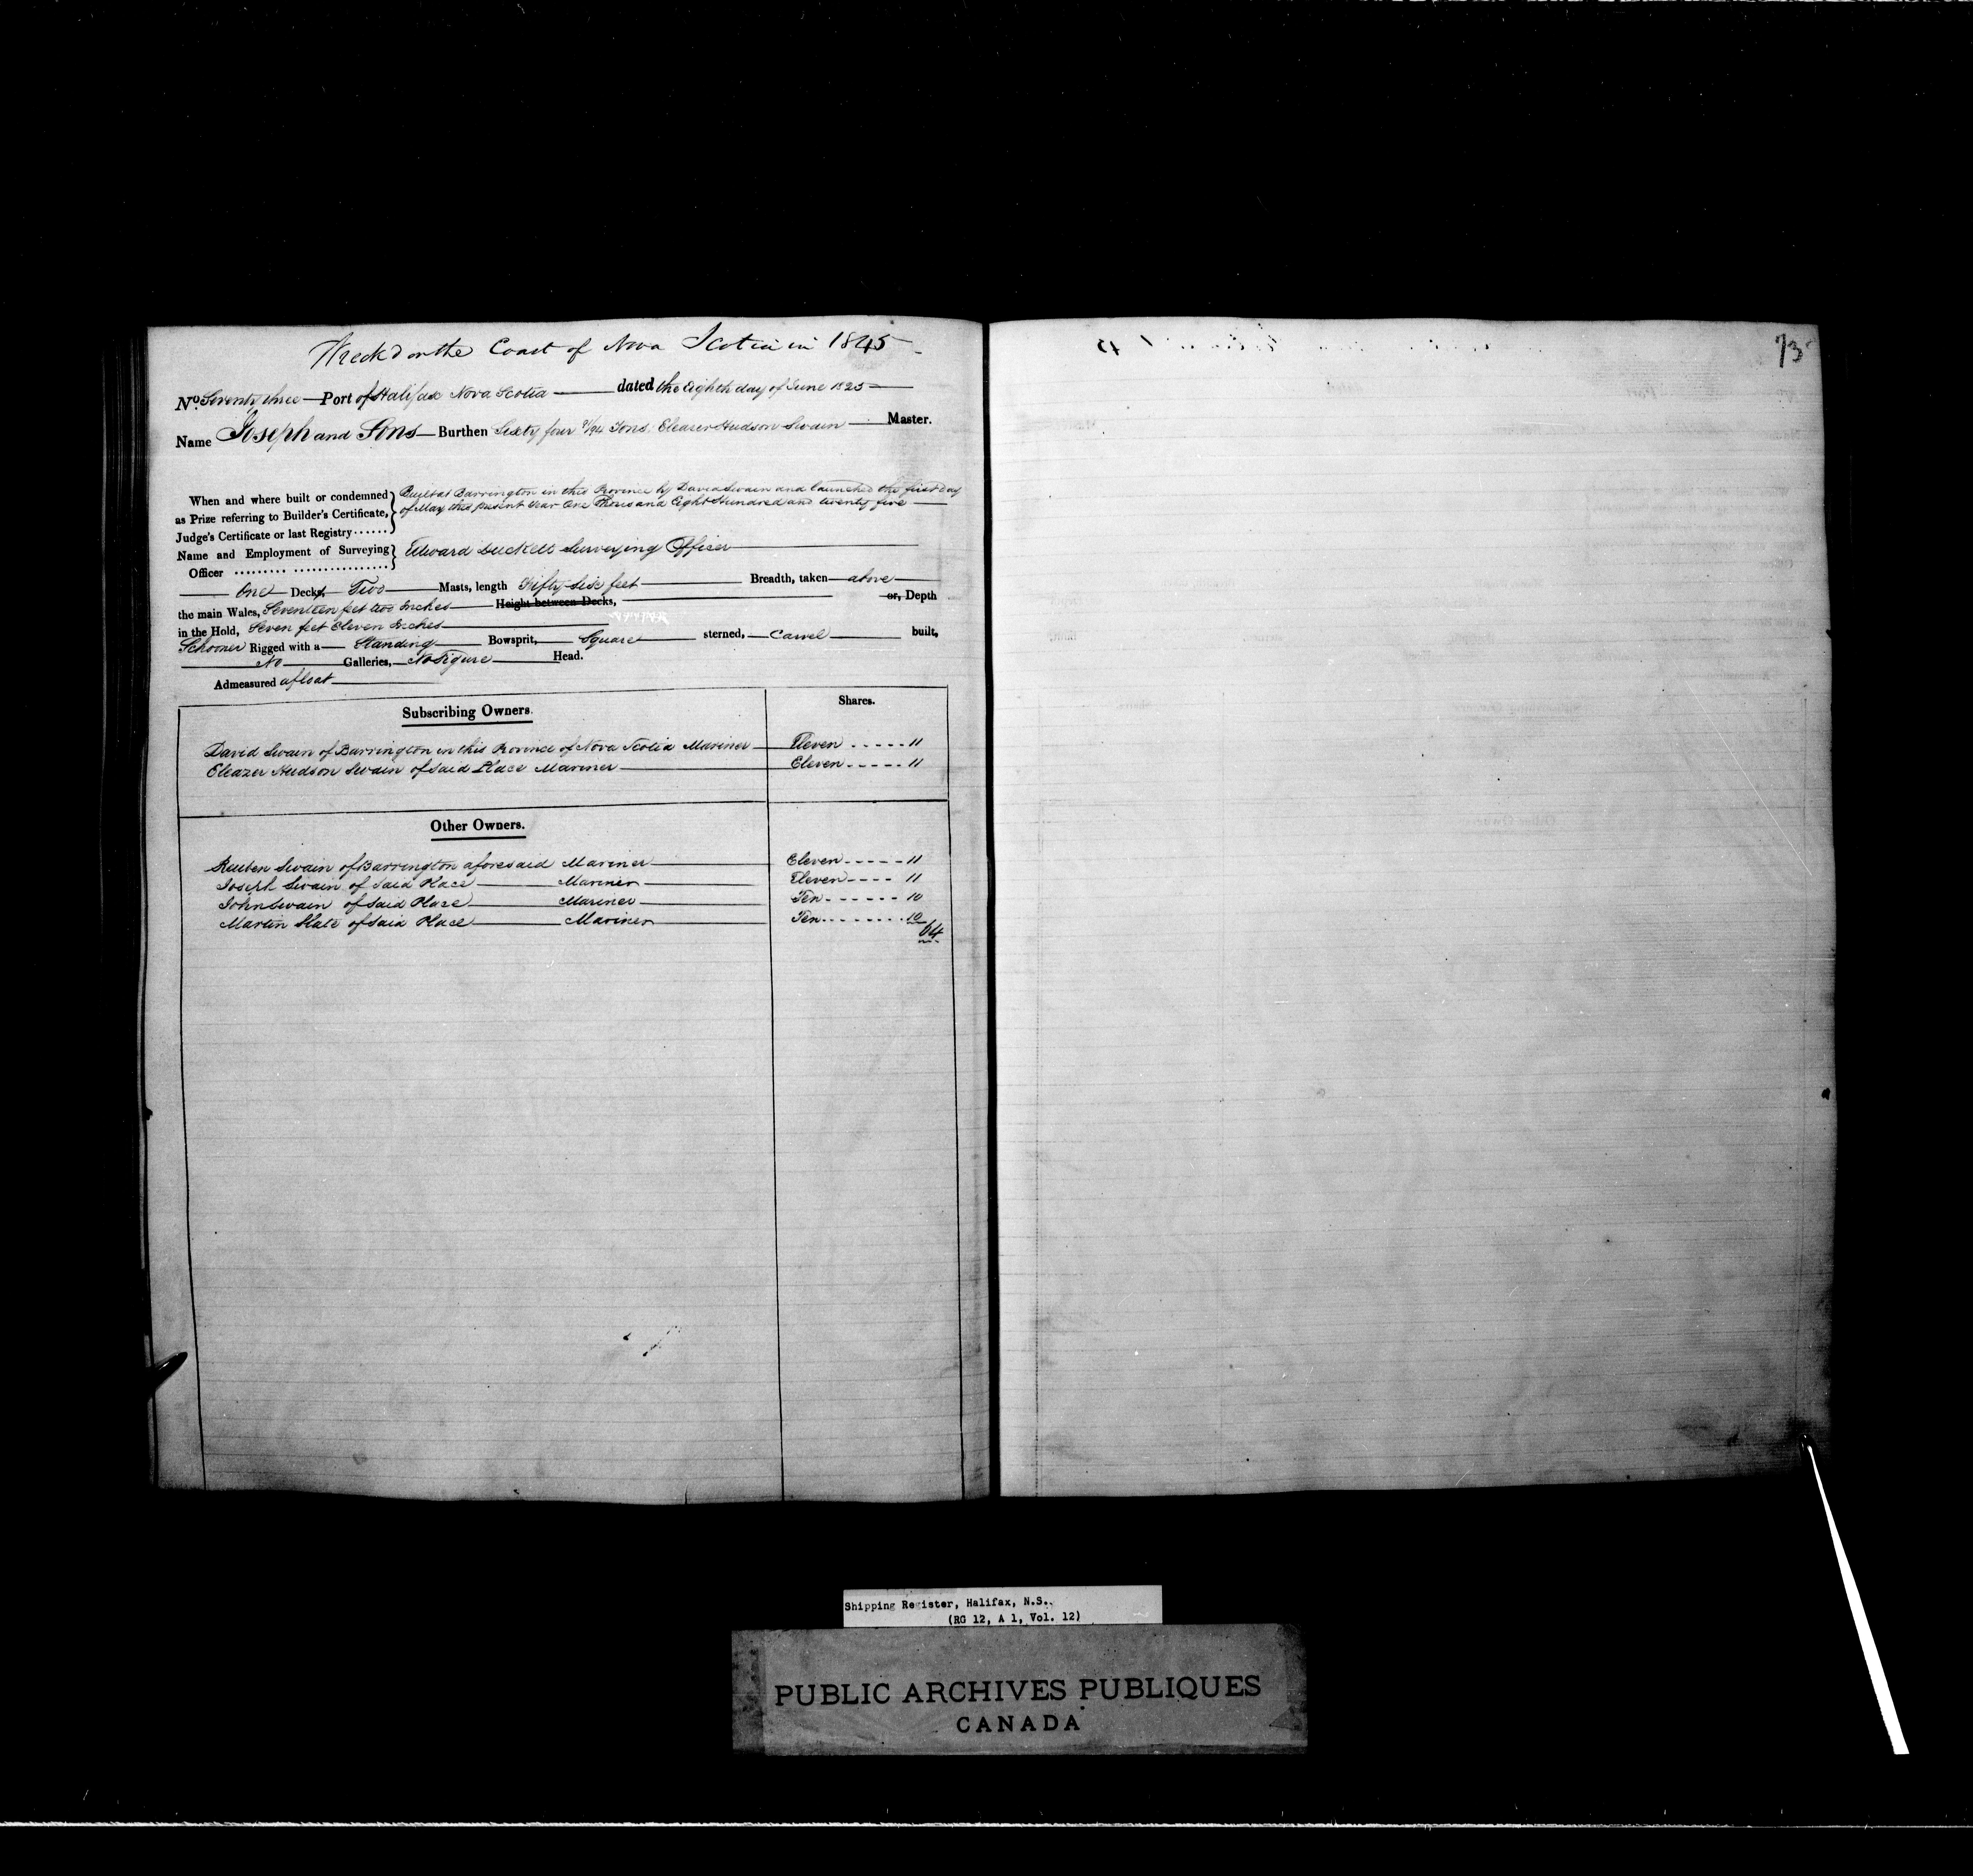 Wreck'd on the Coast of Nova Scotia in 1845
73
No. Seventy three Port of Halifax Nova Scotia dated the Eighth day of June 1825
Name Joseph and Sons Burthen Sixty four /94 Tons Eleazer Hudson Swain Master.
When and where built or condemned
as Prize referring to Builder's Certificate,
Judge's Certificate or last Registry ......
Built at Barrington in this Province by David Swain and launched the first day
of May this present Year One Thousand Eight Hundred and twenty five
Name and Employment of Surveying
Officer ......... ................
Edward Duckett Surveying Officer
One Decks, Two Masts, length Fifty Six feet Breadth, taken above
the main Wales, Seventeen feet two Inches Height between Decks, or, Depth
in the Hold, Seven feet Eleven Inches
Schooner Rigged with a Standing Bowsprit, Square sterned, Carvel built,
No Galleries, No Figure Head.
Admeasured afloat
Subscribing Owners. Shares.
David Swain of Barrington in this Province of Nova Scotia Mariner Eleven ..... 11
Eleazer Hudson Swain of said Place Mariner Eleven ..... 11
Other Owners.
Reuben Swain of Barrington aforesaid Mariner Eleven ..... 11
Joseph Swain of said Place Mariner Eleven .... 11
John Swain of said Place Mariner Ten ...... 10
Martin Slate of said Place Mariner Ten ....... 10
64
Shipping Register, Halifax, N.S.
(RG 12, A 1, Vol. 12)
PUBLIC ARCHIVES PUBLIQUES
CANADA